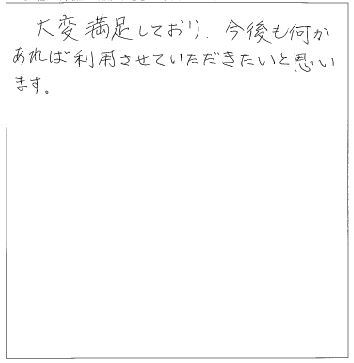 大変満足しており、今後も何か
あれば利用させていただきたいと思い
ます。